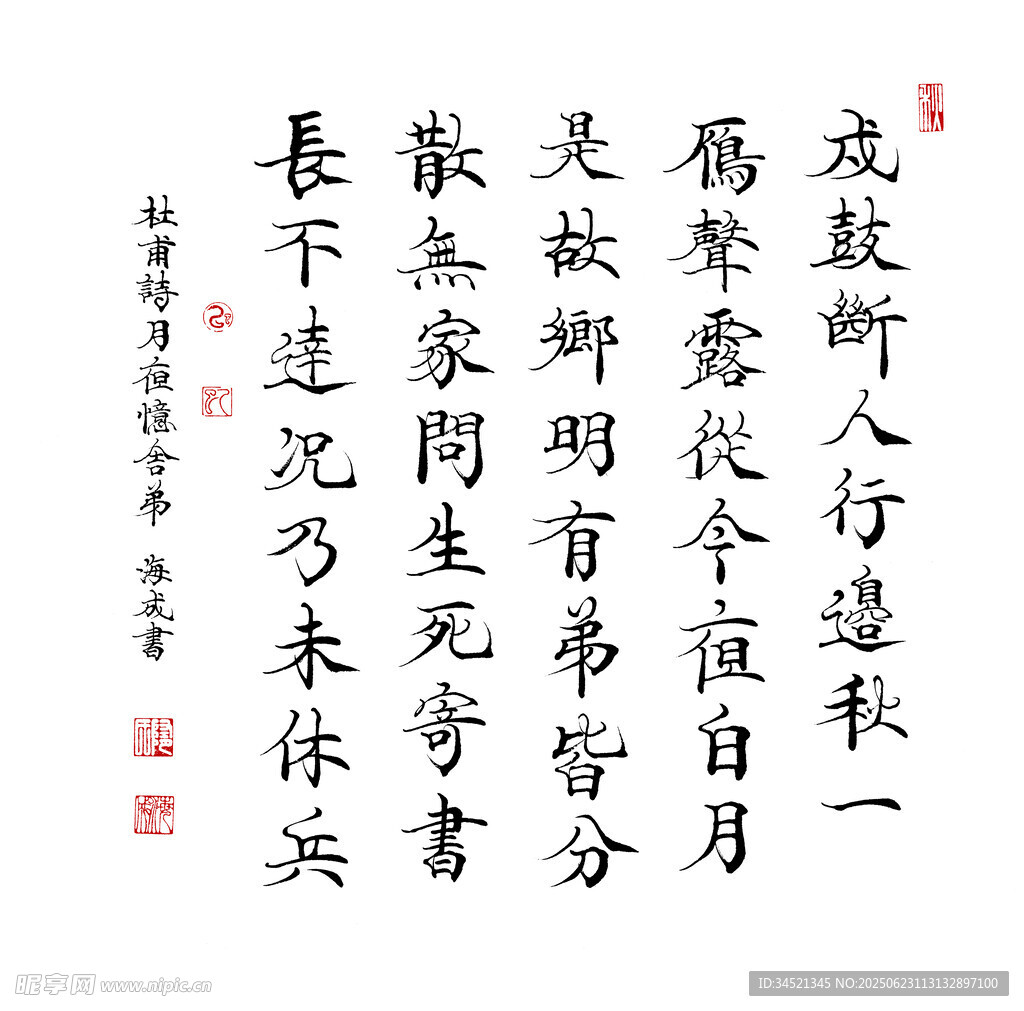 戍鼓斷人行邊秋一
鴈聲露從今夜白月
是故鄉明有弟皆分
散無家問生死寄書
長不達況乃未休兵
杜甫詩月夜憶舍弟 海成書
昵享网 www.nipic.cn
ID:34521345 NO:20250623113132897100